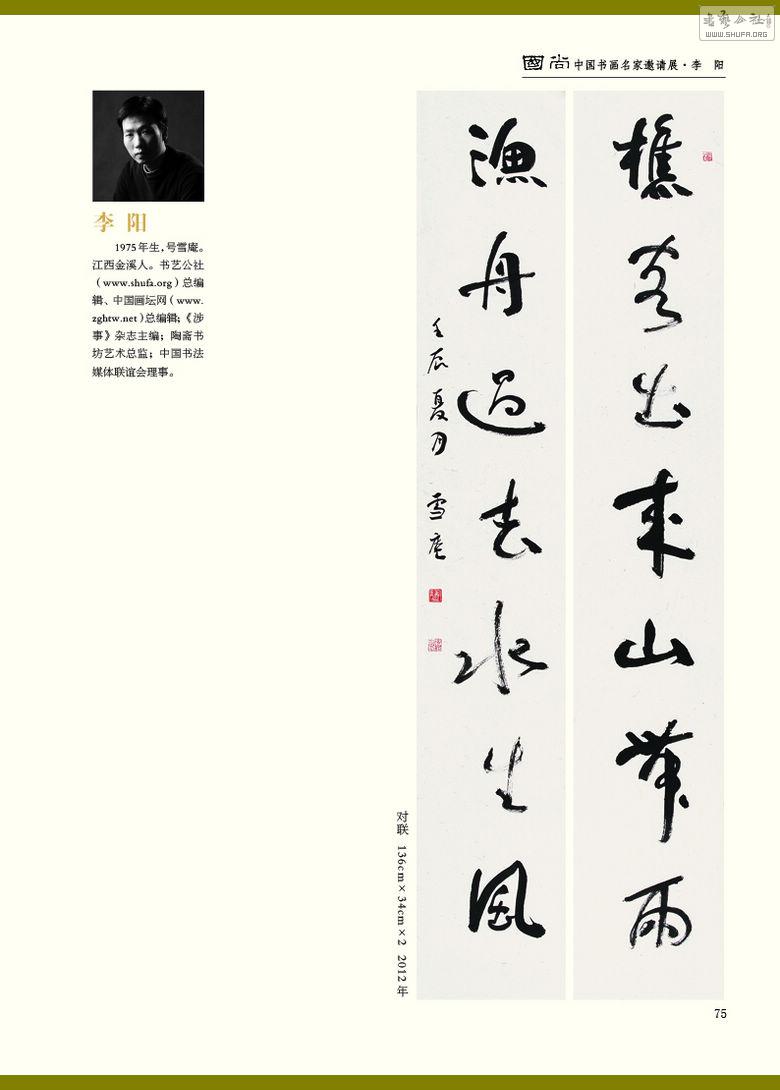 书艺公社
WWW.SHUFA.ORG
國尚 中国书画名家邀请展·李 阳
李 阳
1975年生，号雪庵。
江西金溪人。书艺公社
（www.shufa.org）总编
辑、中国画坛网（www.
zghtw.net）总编辑；《涉
事》杂志主编；陶斋书
坊艺术总监；中国书法
媒体联谊会理事。
樵客出来山带雨
渔舟過去水生风
壬辰夏月 雪庵
对联 136cm×34cm×2 2012年
75